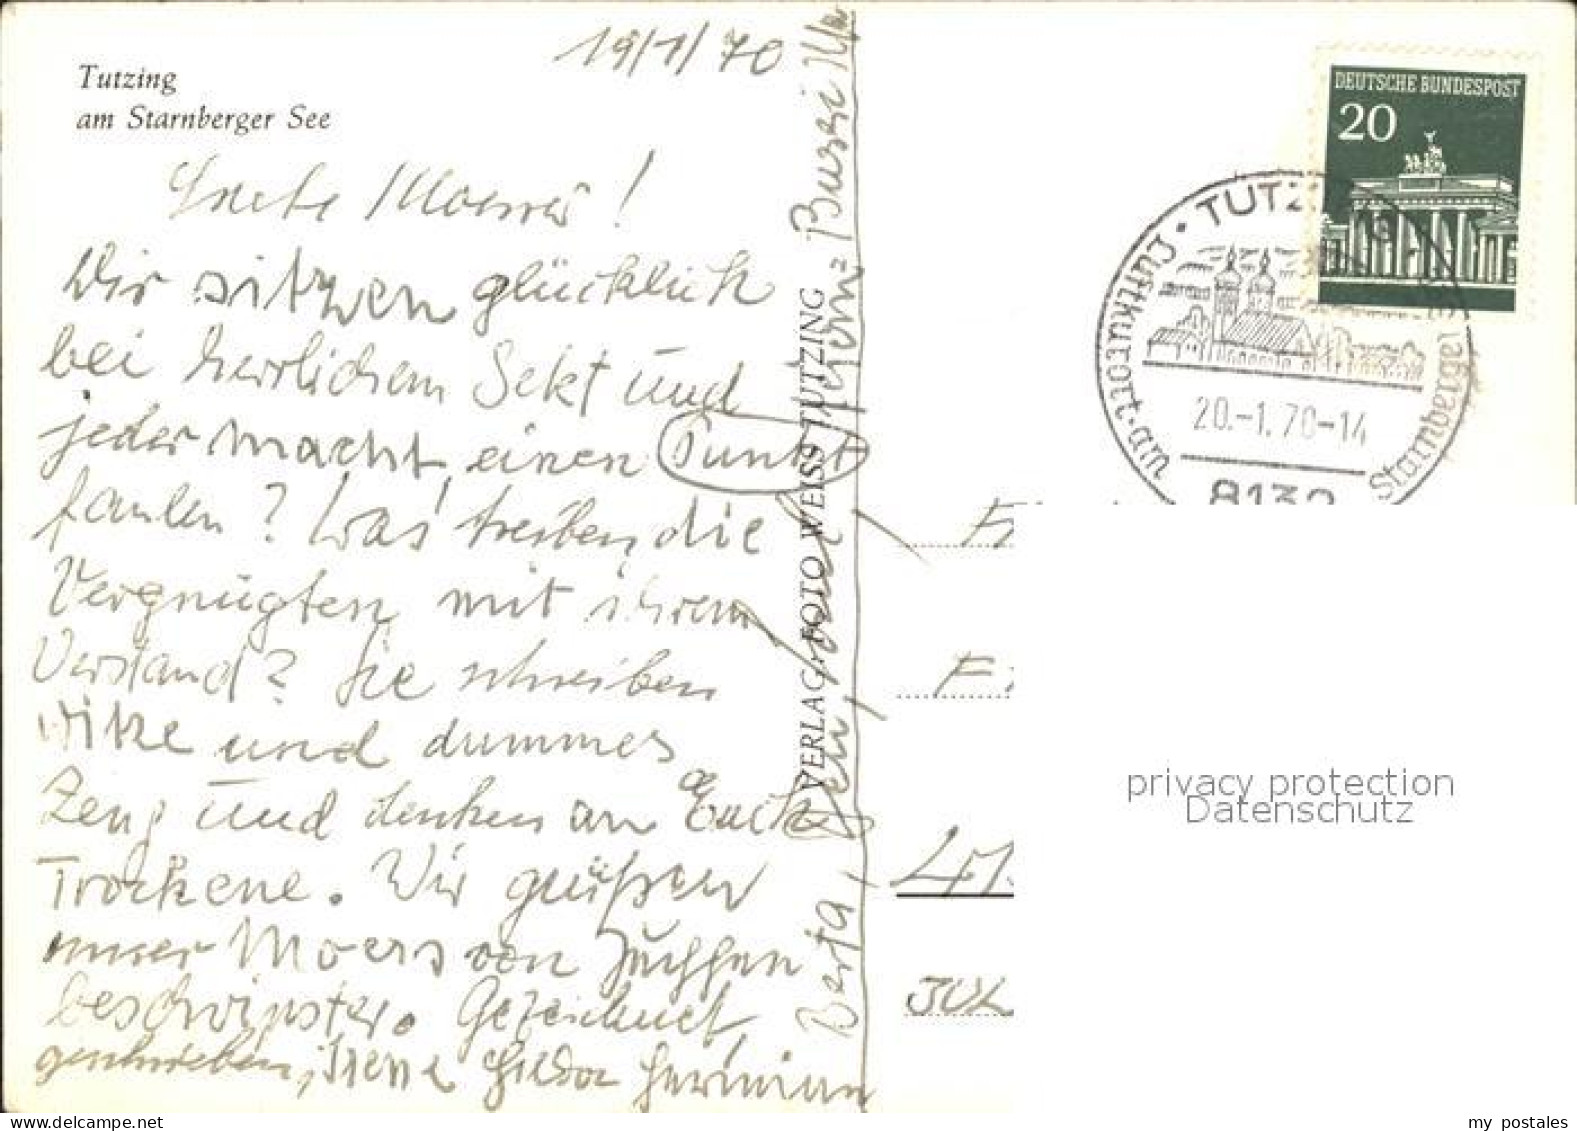 19/1/70
Tutzing
am Starnberger See
Moerser!
Wir sitzen glücklich
bei herrlichem Sekt und
jeder macht einen Punkt
fanlen? Was treiben die
Vergnügten mit ihrem
Verstand? Sie schreiben
Witze und dummes
Zeug und denken an Euch
Trockene. Wir grüßen
unser Moers von
beschwipster. Gezeichnet,
geschrieben, Irene Hilda Hermann
Berta,
Heini Bussi
VERLAG: FOTO WEISS TUTZING
DEUTSCHE BUNDESPOST
20
TUTZ
Luftkurort am
Starnberger
20.-1.70-14
8132
privacy protection
Datenschutz
my postales